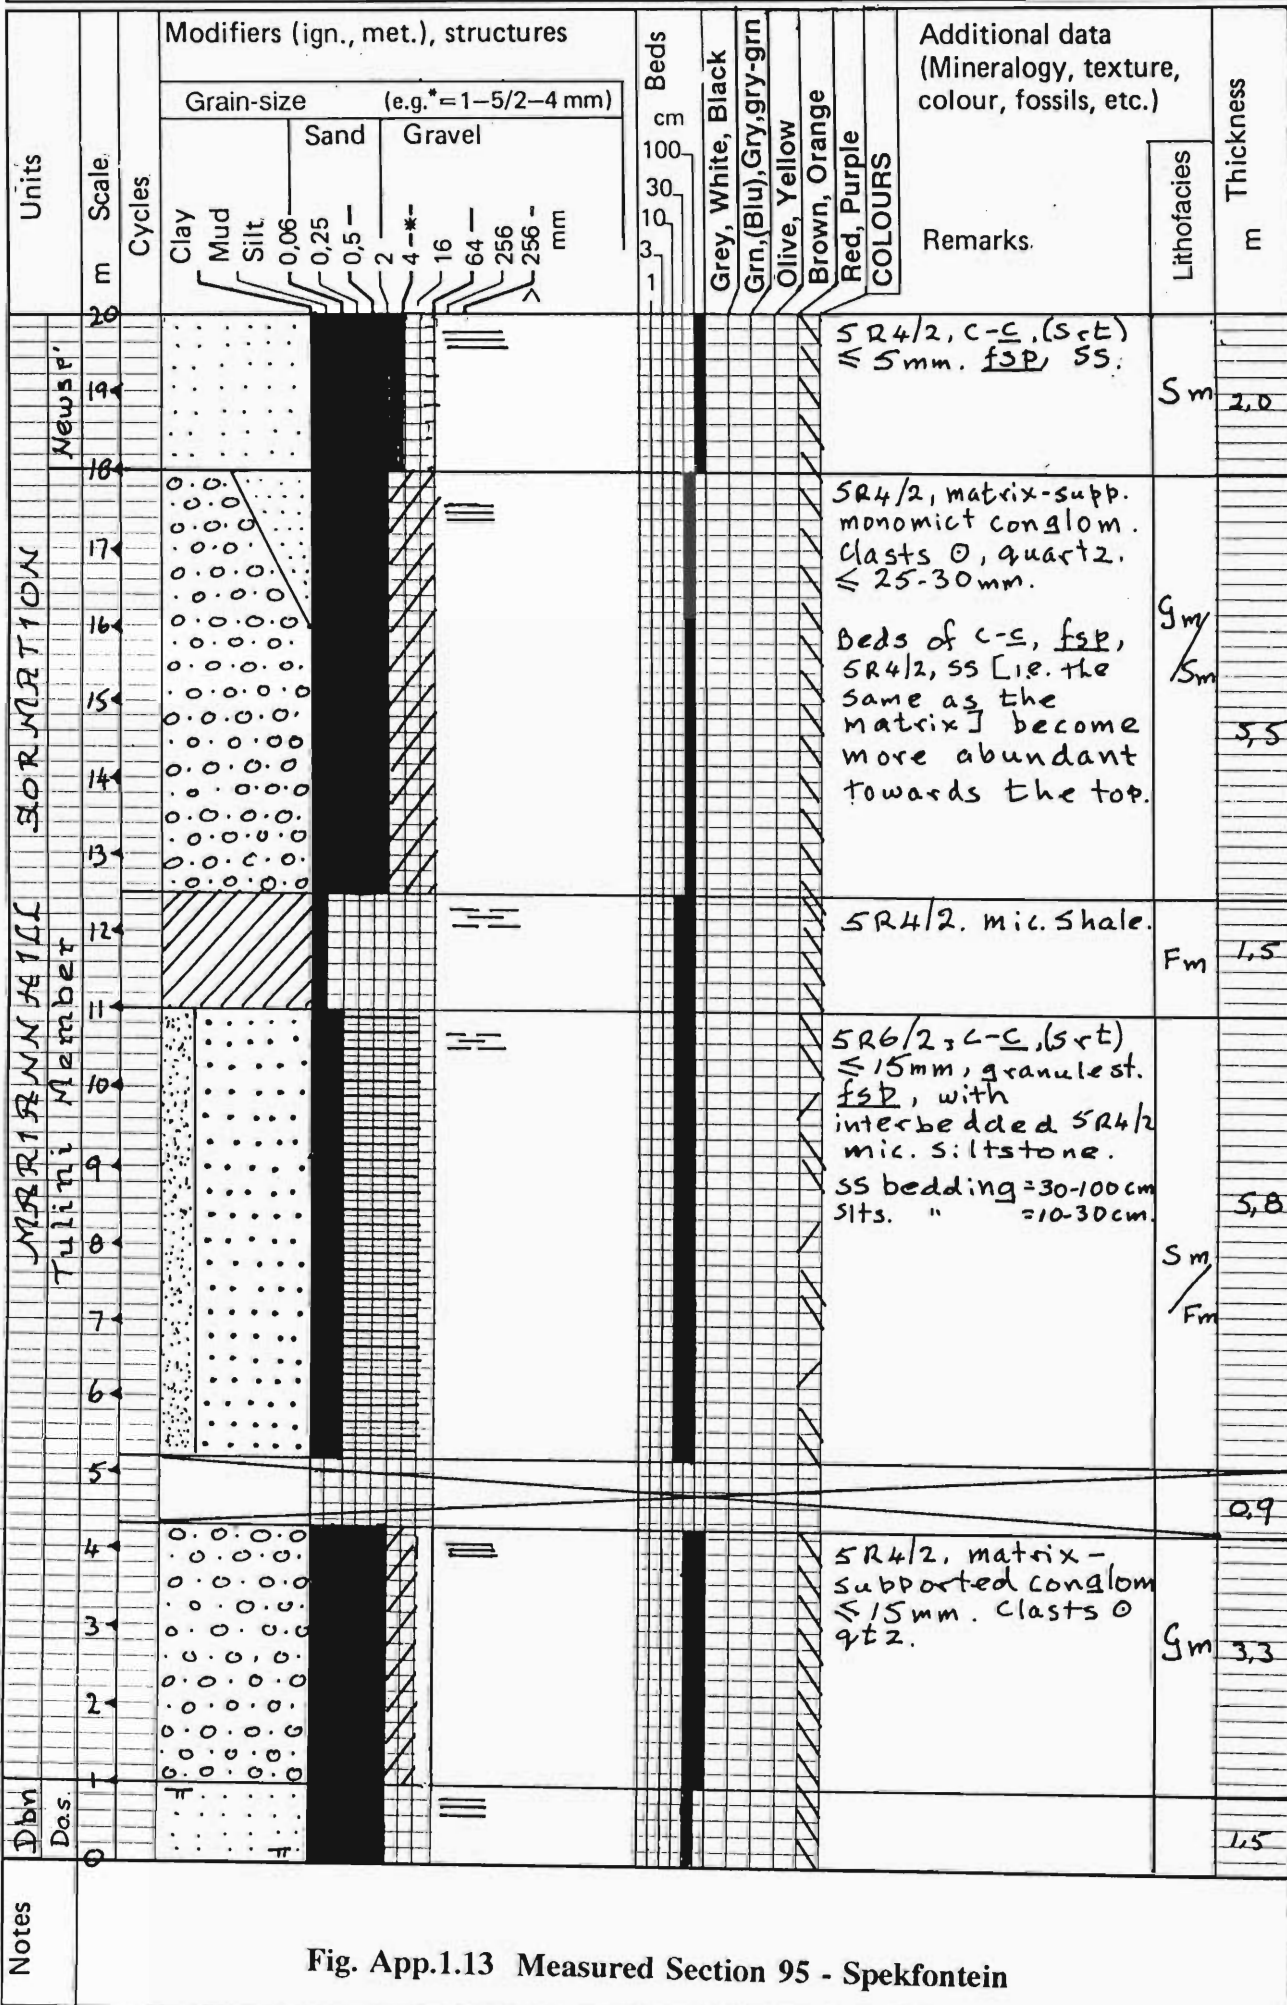 Modifiers (ign., met.), structures
Grain-size (e.g.*=1–5/2–4 mm)
Sand Gravel
Units
Scale m
Cycles
Clay
Mud
Silt
0,06
0,25
0,5
2
4 -*-
16
64
256
>256
mm
Beds
cm
100
30
10
3
1
Grey, White, Black
Grn,(Blu),Gry,gry-grn
Olive, Yellow
Brown, Orange
Red, Purple
COLOURS
Additional data
(Mineralogy, texture,
colour, fossils, etc.)
Remarks.
Lithofacies
Thickness
m
MARIANNHILL FORMATION
Newsp'
Tulini Member
Dbn
Das.
20
19
18
17
16
15
14
13
12
11
10
9
8
7
6
5
4
3
2
1
0
5R4/2, c-c, (srt)
≤ 5mm. fsp, SS.
Sm
2,0
5R4/2, matrix-supp.
monomict conglom.
Clasts ⊙, quartz.
≤ 25-30mm.
Beds of c-c, fsp,
5R4/2, SS [i.e. the
same as the
matrix] become
more abundant
towards the top.
Gm/Sm
5,5
5R4/2. mic. Shale.
Fm
1,5
5R6/2, c-c, (srt)
≤ 15mm, granulest.
fsp, with
interbedded 5R4/2
mic. siltstone.
SS bedding = 30-100 cm
Slts. " = 10-30 cm.
Sm/Fm
5,8
0,9
5R4/2, matrix-
supported conglom
≤ 15mm. Clasts ⊙
qtz.
Gm
3,3
1,5
Notes
Fig. App.1.13 Measured Section 95 - Spekfontein